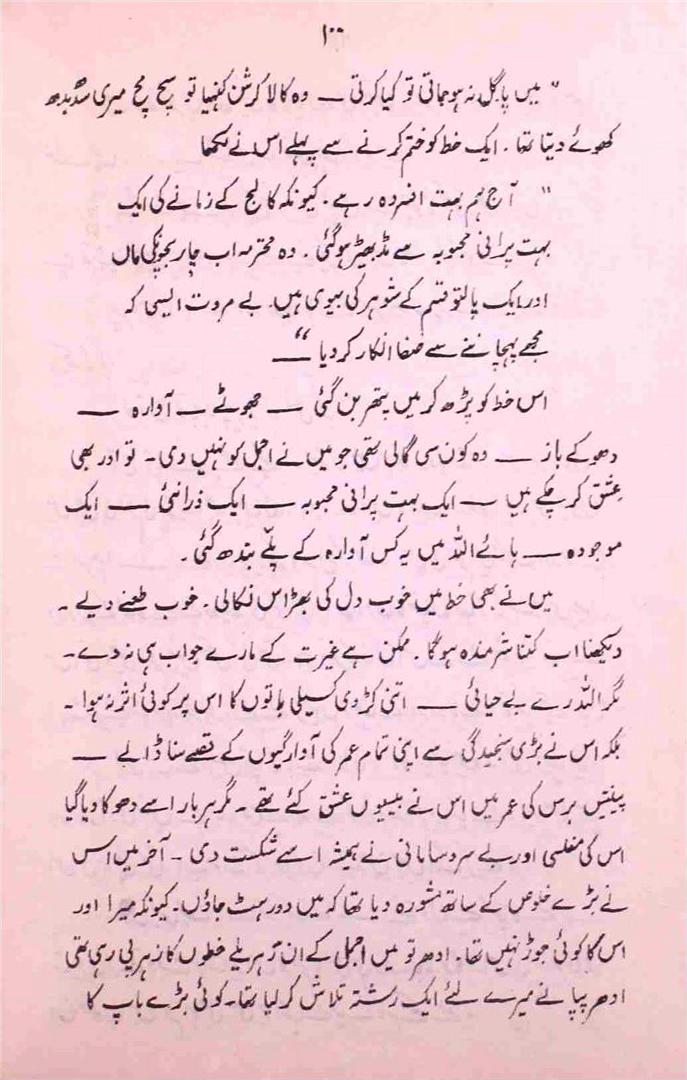 ۱۰۰
" میں پاگل نہ ہو جاتی تو کیا کرتی — وہ کالا کرشن کنہیا تو سچ مچ میری سدھ بدھ
کھوئے دیتا تھا ۔ ایک خط کو ختم کرنے سے پہلے اس نے لکھا
" آج ہم بہت افسردہ رہے ۔ کیونکہ کالج کے زمانے کی ایک
بہت پرانی محبوبہ سے مڈبھیڑ ہوگئی ۔ وہ محترمہ اب چار بچونکی ماں
اور ایک پالتو قسم کے شوہر کی بیوی ہیں۔ بے مروت ایسی کہ
مجھے پہچاننے سے صفا انکار کر دیا " —
اس خط کو پڑھ کر میں پتھر بن گئی — جھوٹے — آوارہ —
دھوکے باز — وہ کون سی گالی تھی جو میں نے اجمل کو نہیں دی ۔ تو اور بھی
عشق کر چکے ہیں — ایک بہت پرانی محبوبہ — ایک ذرا نئی — ایک
موجودہ — ہائے اللہ میں یہ کس آوارہ کے پلّے بندھ گئی ۔
میں نے بھی خط میں خوب دل کی بھڑاس نکالی ۔ خوب طعنے دیے ۔
دیکھنا اب کتنا شرمندہ ہوگا ۔ ممکن ہے غیرت کے مارے جواب ہی نہ دے ۔
مگر اللہ رے بے حیائی — اتنی کڑوی کسیلی باتوں کا اس پر کوئی اثر نہ ہوا ۔
بلکہ اس نے بڑی سنجیدگی سے اپنی تمام عمر کی آوارگیوں کے قصے سنا ڈالے —
پینتیس برس کی عمر میں اس نے بیسیوں عشق کئے تھے ۔ مگر ہر بار اسے دھوکا دیا گیا
اس کی مفلسی اور بے سروسامانی نے ہمیشہ اسے شکست دی ۔ آخر میں اس
نے بڑے خلوص کے ساتھ مشورہ دیا تھا کہ میں دور ہٹ جاؤں۔ کیونکہ میرا اور
اس کا کوئی جوڑ نہیں تھا ۔ ادھر تو میں اجمل کے ان زہریلے خطوں کا زہر پی رہی تھی
ادھر پپا نے میرے لئے ایک رشتہ تلاش کر لیا تھا۔ کوئی بڑے باپ کا